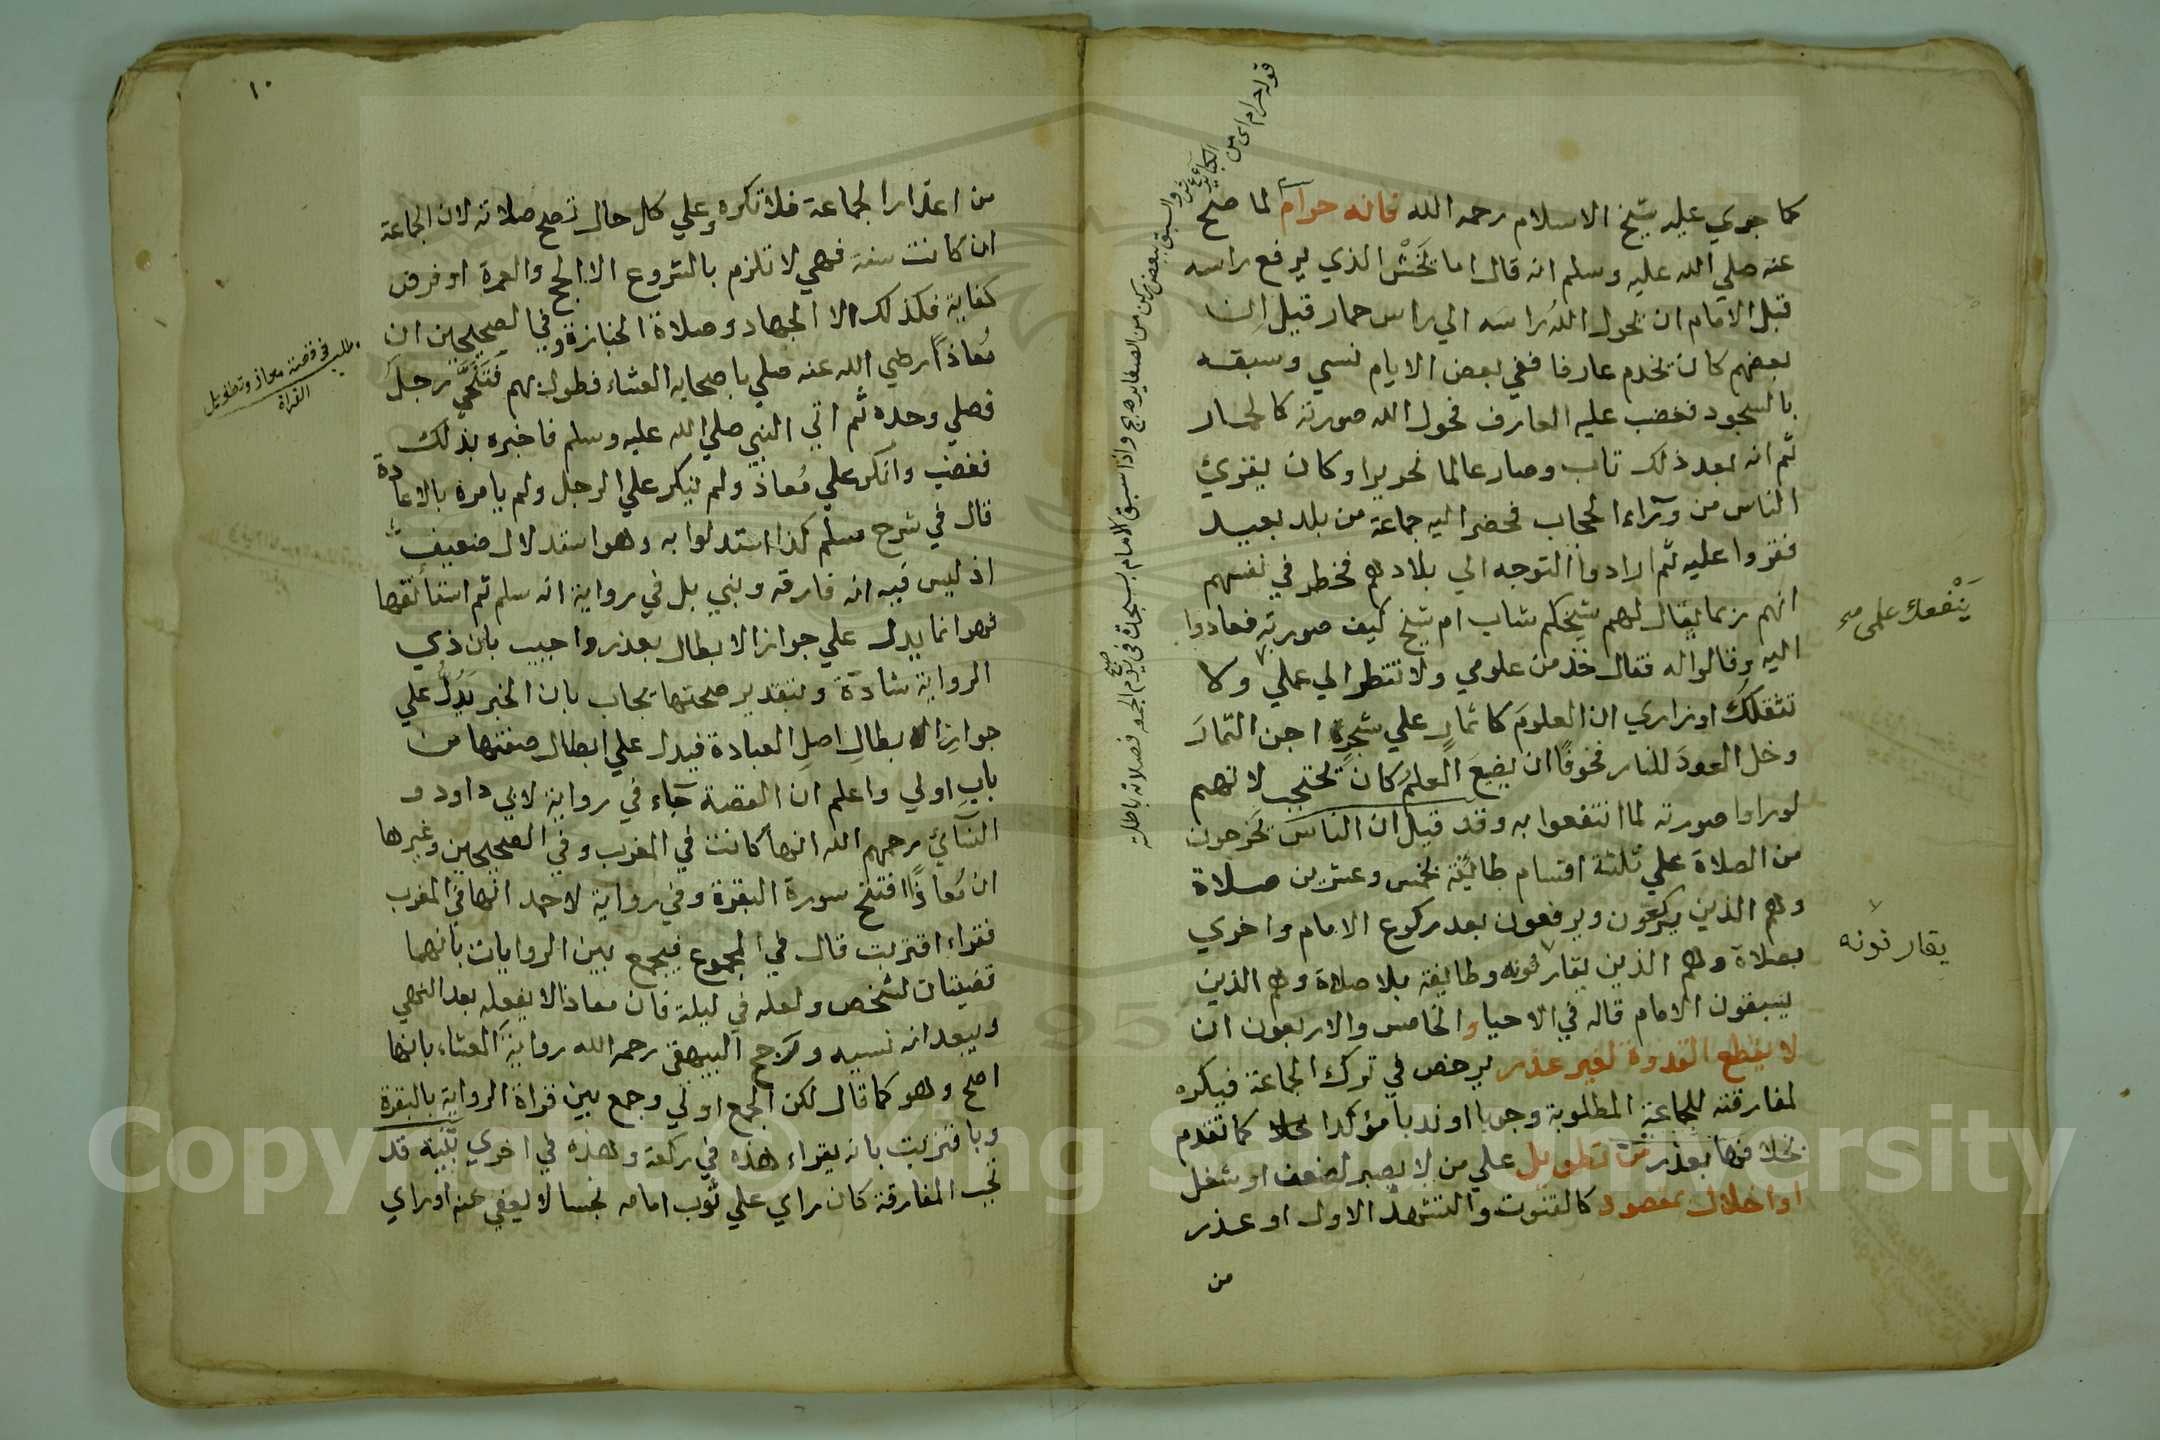 كما جري عليه شيخ الاسلام رحمه الله فانه حرام لما صح
عنه صلي الله عليه وسلم انه قال اما يخشي الذي يرفع راسه
قبل الامام ان يحول الله راسه الي راس حمار قيل ان
بعضهم كان يخدم عارفا ففي بعض الايام نسي وسبقه
بالسجود فغضب عليه العارف فحول الله صورته كالحمار
ثم انه بعد ذلك تاب وصار عالما نحريرا وكان يقرئ
الناس من ورآء الحجاب فحضر اليه جماعة من بلد بعيد
فقروا عليه ثم ارادوا التوجه الي بلادهم فخطر في نفسهم
انهم ربما يقال لهم شيخكم شاب ام شيخ كيف صورته فعادوا
اليه وقالوا له فقال خذ من علومي ولا تنظر الي عملي ولا
تثقلك اوزاري ان العلوم كاثمار علي شجرة اجن الثمار
وخل العود للنار فخوفا ان يضيع العلم كان يحتجب لانهم
لو راوا صورته لما انتفعوا به وقد قيل ان الناس يخرجون
من الصلاة علي ثلثة اقسام طائفة بخمس وعشرين صلاة
وهم الذين يركعون ويرفعون بعد ركوع الامام واخري
بصلاة وهم الذين يقارنونه وطايفة بلا صلاة وهم الذين
يسبقون الامام قاله في الاحيا والخامس والاربعون ان
لا يقطع القدوة لغير عذر يرخص في ترك الجماعة فيكره
لمفارقته للجماعة المطلوبة وجوبا او ندبا مؤكدا كما تقدم
بخلافها بعذر من تطويل علي من لا يصبر لضعف او شغل
او اخلال بمقصود كالقنوت والتشهد الاول او عذر
من
قوله حرام اي من
الكبائر
والسبق ببعض ركن من الصغاير م ج واذا سبق الامام بسجدة في يوم الجمعه فصلاته باطلة
ينفعك علمي صح
يقارنونه
١٠
من اعذار الجماعة فلا تكره وعلي كل حال تصح صلاته لان الجماعة
ان كانت سنة فهي لا تلزم بالشروع الا الحج والعمرة او فرض
كفاية فكذلك الا الجهاد وصلاة الجنازة وفي الصحيحين ان
معاذا رضي الله عنه صلي باصحابه العشاء فطول بهم فتنحي رجل
فصلي وحده ثم اتي النبي صلي الله عليه وسلم فاخبره بذلك
فغضب وانكر علي معاذ ولم ينكر علي الرجل ولم يامره بالاعادة
قال في شرح مسلم كذا استدلوا به وهو استدلال ضعيف
اذ ليس فيه انه فارقه وبني بل في رواية انه سلم ثم استأنفها
فهو انما يدل علي جواز الابطال بعذر واجيب بان ذي
الرواية شاذة وبتقدير صحتها يجاب بان الخبر يدل علي
جواز ابطال اصل العبادة فيدل علي ابطال صفتها من
باب اولي واعلم ان القصة جآء في رواية لابي داود و
النسآئي رحمهم الله انها كانت في المغرب وفي الصحيحين وغيرها
ان معاذا افتتح سورة البقرة وفي رواية لاحمد انها في المغرب
فقراء اقتربت قال في المجموع فيجمع بين الروايات بانهما
قضيتان لشخص ولعله في ليلة فان معاذا لا يفعله بعد النهي
ويبعد انه نسيه ورجح البيهقي رحمه الله رواية العشاء بانها
اصح وهو كما قال لكن الجمع اولي وجمع بين قراة الرواية بالبقرة
وباقتربت بانه يقراء هذه في ركعة وهذه في اخري تنبيه قد
تجب المفارقة كان راي علي ثوب امامه نجسا لا يعفي عنه او راي
مطلب في قصة معاذ وتطويل
القراة
Copyright © King Saud University